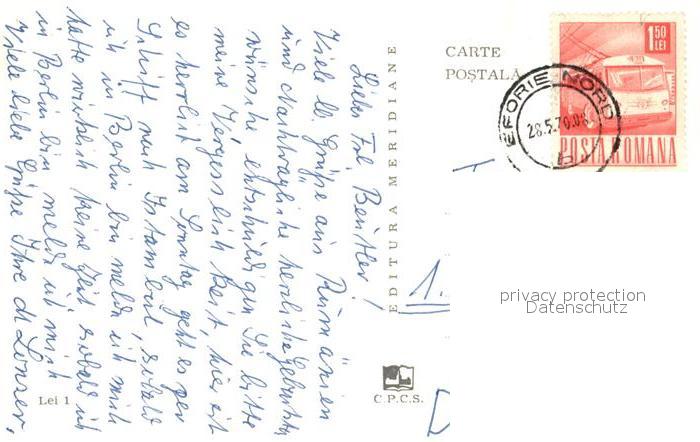 Liebes Frl. Beutler!
Viele lb. Grüße aus Rumänien
und Nachträgliche herzliche Geburtstags
wünsche, entschuldigen Sie bitte
meine Vergesslichkeit, hier ist
es herrlich am Sonntag geht es per
Schiff nach Istambul, sobald
ich in Berlin bin melde ich mich
hatte wirklich keine Zeit sobald ich
in Berlin bin melde ich mich
Viele liebe Grüße Ihre
EDITURA MERIDIANE
CARTE
POȘTALĂ
1,50
LEI
EFORIE NORD
28.5.70.08
b
POSTA ROMANA
1.
privacy protection
Datenschutz
Lei 1
C.P.C.S.